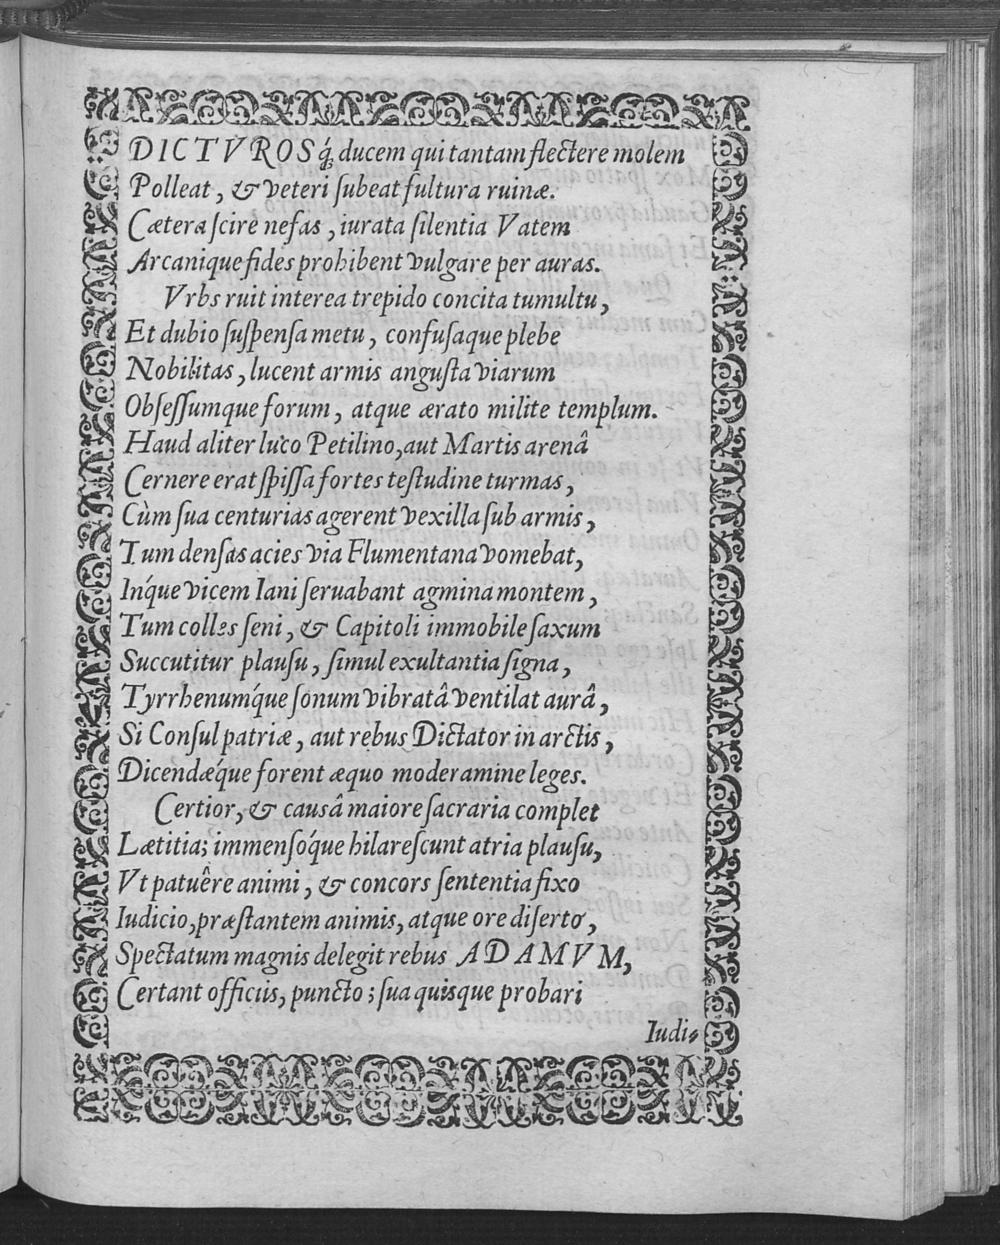 DICTVROSq́; ducem qui tantam flectere molem
Polleat, & veteri ſubeat fultura ruinæ.
Cætera ſcire nefas, iurata ſilentia Vatem
Arcanique fides prohibent vulgare per auras.
Vrbs ruit interea trepido concita tumultu,
Et dubio ſuſpenſa metu, confuſaque plebe
Nobilitas, lucent armis anguſta viarum
Obſeſſumque forum, atque ærato milite templum.
Haud aliter luco Petilino, aut Martis arenâ
Cernere erat ſpiſſa fortes teſtudine turmas,
Cùm ſua centurias agerent vexilla ſub armis,
Tum denſas acies via Flumentana vomebat,
Inq́ue vicem Iani ſeruabant agmina montem,
Tum colles ſeni, & Capitoli immobile ſaxum
Succutitur plauſu, ſimul exultantia ſigna,
Tyrrhenumq́ue ſonum vibratâ ventilat aurâ,
Si Conſul patriæ, aut rebus Dictator in arctis,
Dicendæq́ue forent æquo moderamine leges.
Certior, & causâ maiore ſacraria complet
Lætitia; immenſóque hilareſcunt atria plauſu,
Vt patuêre animi, & concors ſententia fixo
Iudicio, præſtantem animis, atque ore diſerto,
Spectatum magnis delegit rebus ADAMVM,
Certant officiis, puncto; ſua quisque probari
Iudi-